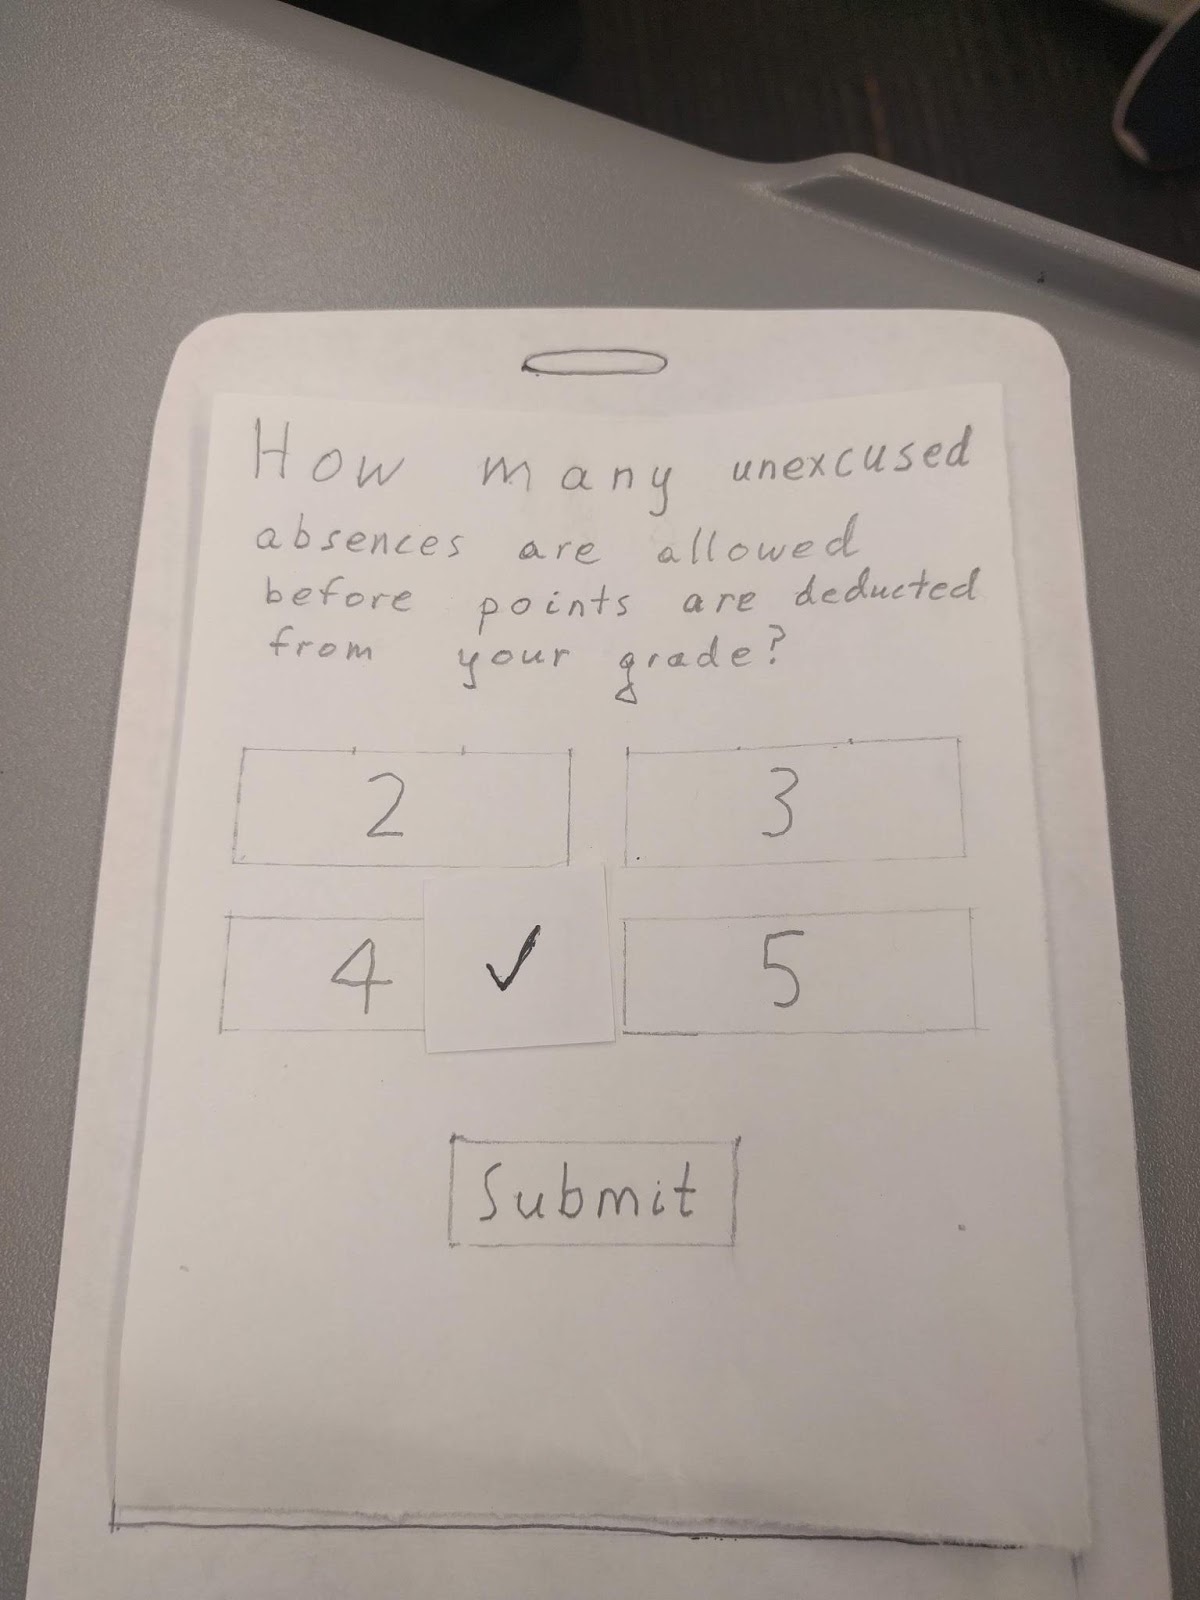 How many unexcused
absences are allowed
before points are deducted
from your grade?
2 3
4 ✓ 5
Submit